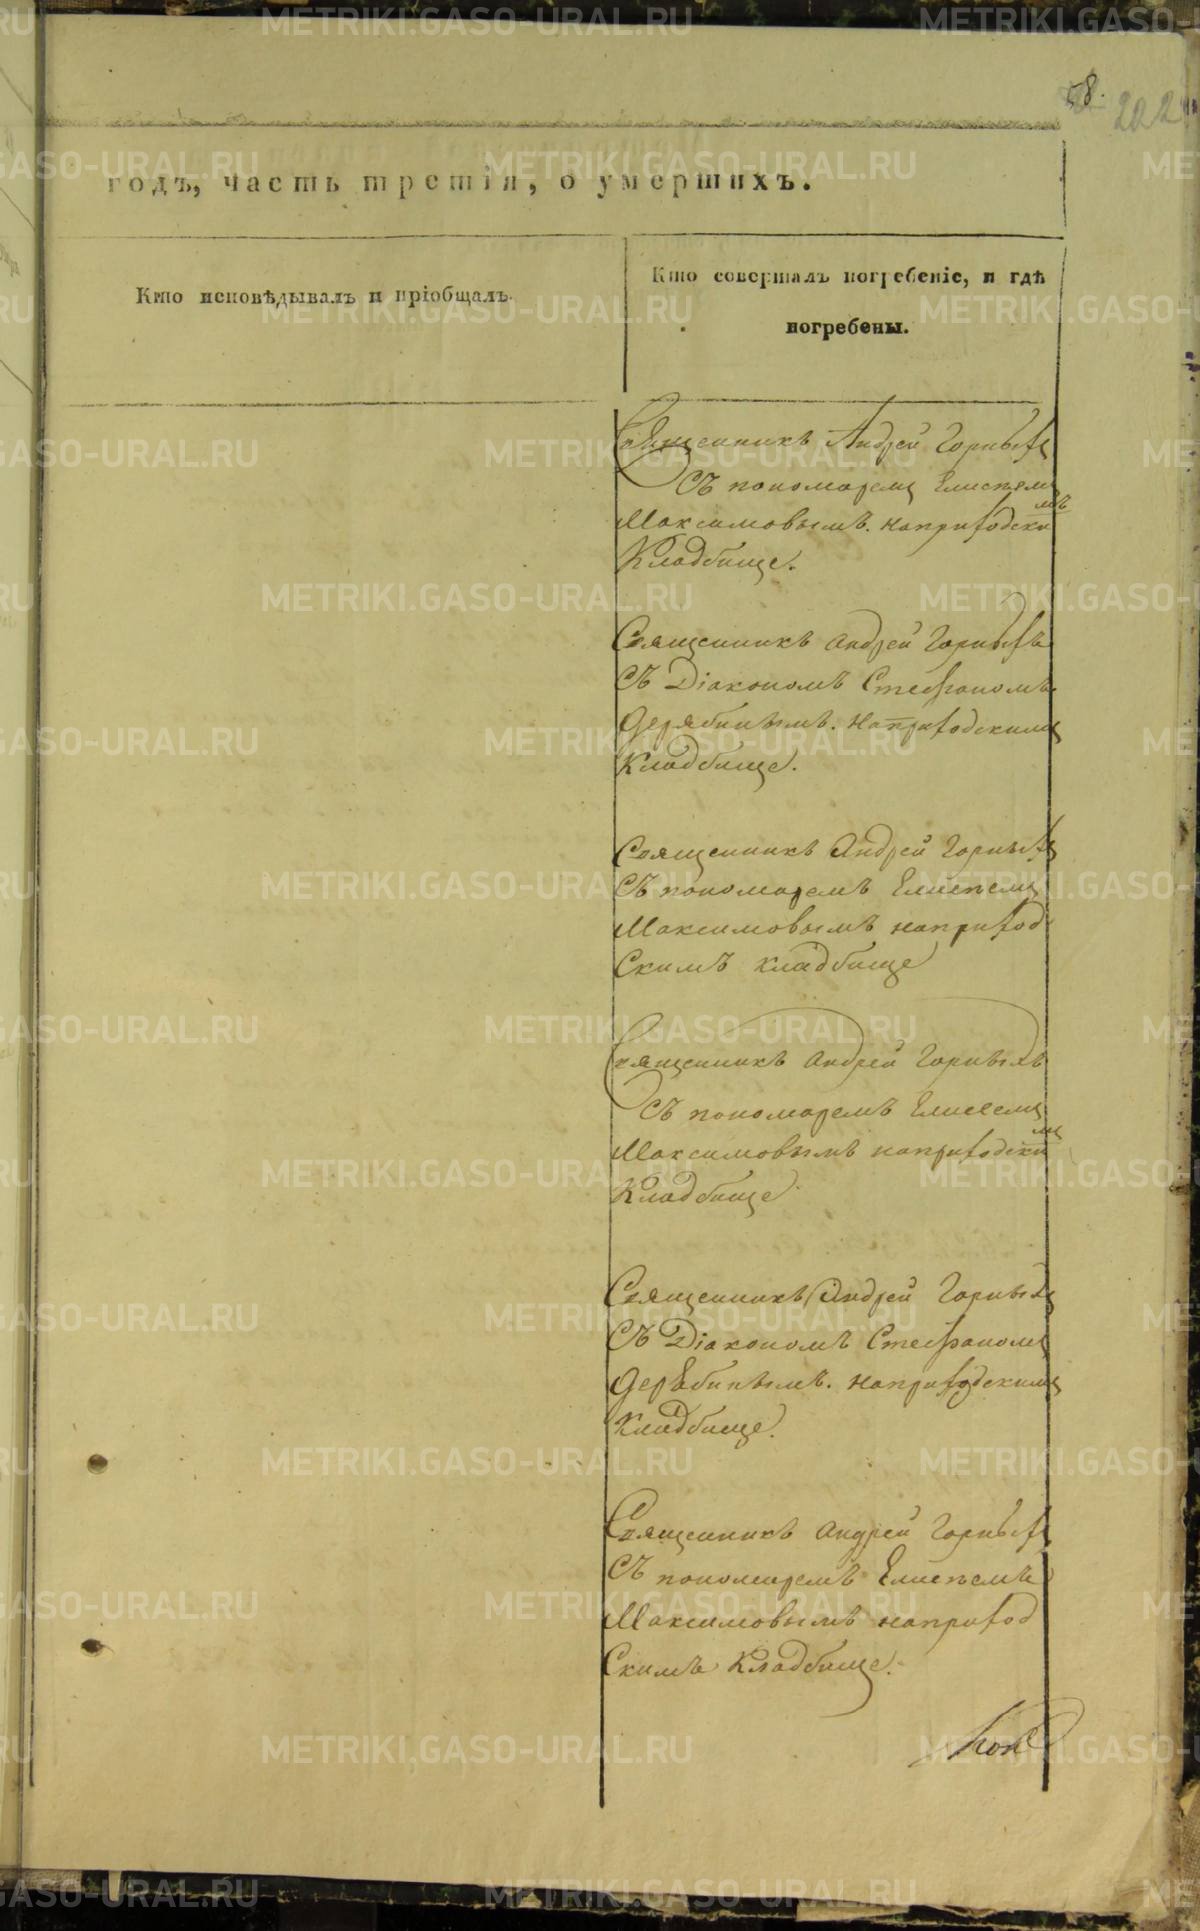 58.
202
годъ, часть третія, о умершихъ.
Кто исповѣдывалъ и пріобщалъ.
Кто совершалъ погребеніе, и гдѣ
погребены.
Священникъ Андрей Горныхъ
Съ пономаремъ Елисѣемъ
Максимовымъ. на приходскимъ
Кладбище.
Священникъ Андрей Горныхъ
Съ Діакономъ Стефаномъ
Дерябинымъ. на приходскимъ
Кладбище.
Священникъ Андрей Горныхъ
Съ пономаремъ Елисѣемъ
Максимовымъ на приход
Скимъ кладбище
Священникъ Андрей Горныхъ
Съ пономаремъ Елисеемъ
Максимовымъ на приходскимъ
Кладбище.
Священникъ Андрей Горныхъ
Съ Діакономъ Стефаномъ
Дерѣбинымъ. на приходскимъ
Кладбище.
Священникъ Андрей Горныхъ
Съ пономаремъ Елисѣемъ
Максимовымъ на приход
Скимъ Кладбище.
METRIKI.GASO-URAL.RU